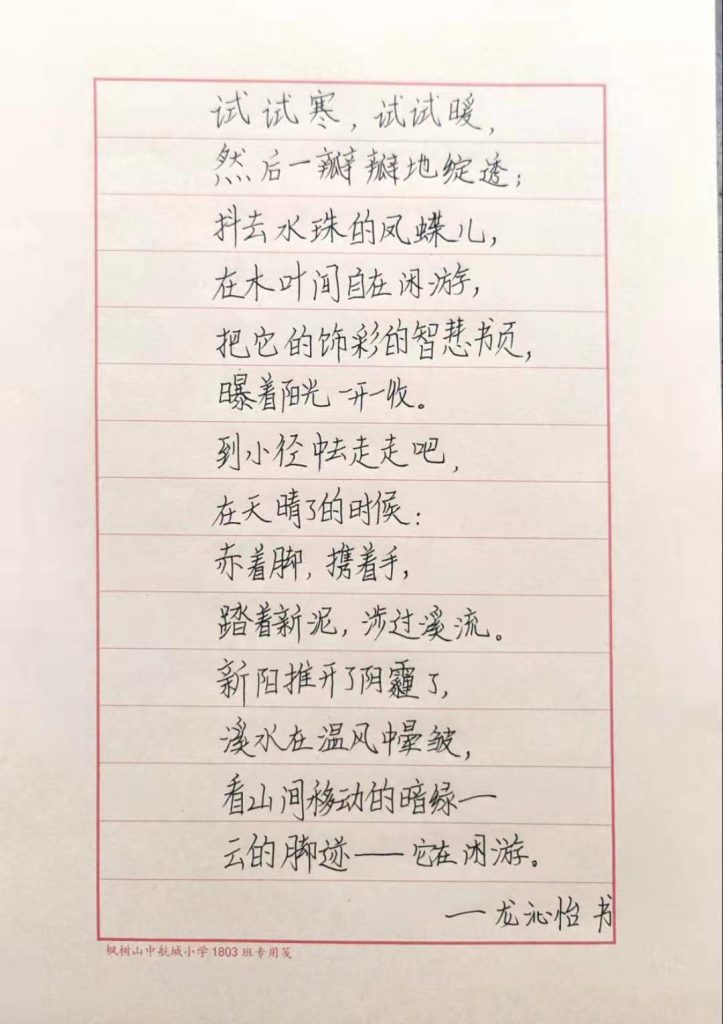 试试寒，试试暖，
然后一瓣瓣地绽透；
抖去水珠的凤蝶儿，
在木叶间自在闲游，
把它的饰彩的智慧书页，
曝着阳光一开一收。
到小径中去走走吧，
在天晴了的时候：
赤着脚，携着手，
踏着新泥，涉过溪流。
新阳推开了阴霾了，
溪水在温风中晕皱，
看山间移动的暗绿—
云的脚迹——它在闲游。
—龙沁怡 书
枫树山中航城小学1803班专用笺